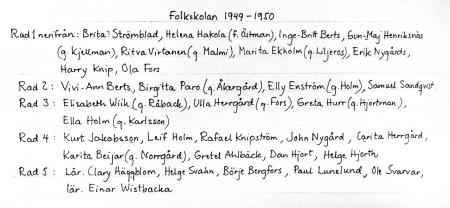 Folkskolan 1949-1950
Rad 1 nerifrån: Brita? Strömblad, Helena Hakola (f. Östman), Inge-Britt Berts, Gun-Maj Henriksnäs
(g. Kjellman), Ritva Virtanen (g. Malmi), Marita Ekholm (g. Liljeros), Erik Nygårds,
Harry Knip, Ola Fors
Rad 2: Vivi-Ann Berts, Birgitta Paro (g. Åkergård), Elly Enström (g. Holm), Samuel Sandqvist.
Rad 3: Elisabeth Wiik (g. Råback), Ulla Herrgård (g. Fors), Greta Hurr (g. Hjortman),
Ella Holm (g. Karlsson)
Rad 4: Kurt Jakobsson, Leif Holm, Rafael Knipström, John Nygård, Carita Herrgård,
Karita Beijar (g. Norrgård), Gretel Ahlbäck, Dan Hjort, Helge Hjorth
Rad 5: Lär. Clary Häggblom, Helge Svahn, Börje Bergfors, Paul Lunelund, Ole Svarvar,
lär. Einar Wistbacka